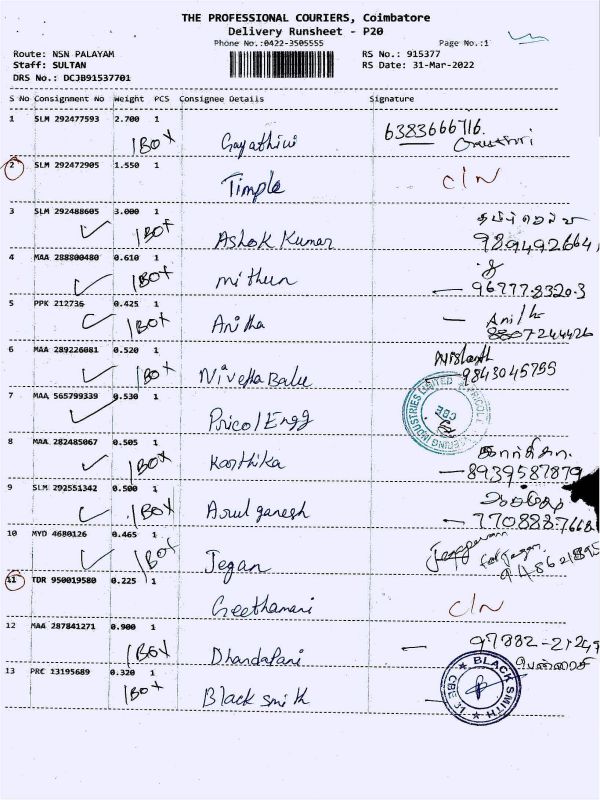 THE PROFESSIONAL COURIERS, Coimbatore
Delivery Runsheet - P20
Phone No.:0422-3505555 Page No.:1
Route: NSN PALAYAM RS No.: 915377
Staff: SULTAN RS Date: 31-Mar-2022
DRS No.: DCJB91537701
S No Consignment No Weight PCS Consignee Details Signature
1 SLM 292477593 2.700 1
1BOX Gayathiri 6383666716.
2 SLM 292472905 1.550 1
Timple C/N
3 SLM 292488605 3.000 1
1BOX Ashok Kumar
4 MAA 288800480 0.610 1
1BOX mithun
5 PPK 212736 0.425 1
1BOX Anitha Anitha
8807244426
6 MAA 289226081 0.520 1
1BOX Nivetha Balu 9843045755
7 MAA 565799339 0.530 1
Pricol Engg
8 MAA 282485067 0.505 1
1BOX Karthika கார்த்திகா
8939587879
9 SLM 292551342 0.500 1
1BOX Arul ganesh
7708887668
10 MYD 4680126 0.465 1
1BOX Jegan
11 TDR 950019580 0.225 1
Geethamani C/N
12 MAA 287841271 0.900 1
1BOX Dhandapani
13 PRC 13195689 0.320 1
1BOX Black smith
BLACK SMITH
CBE 31